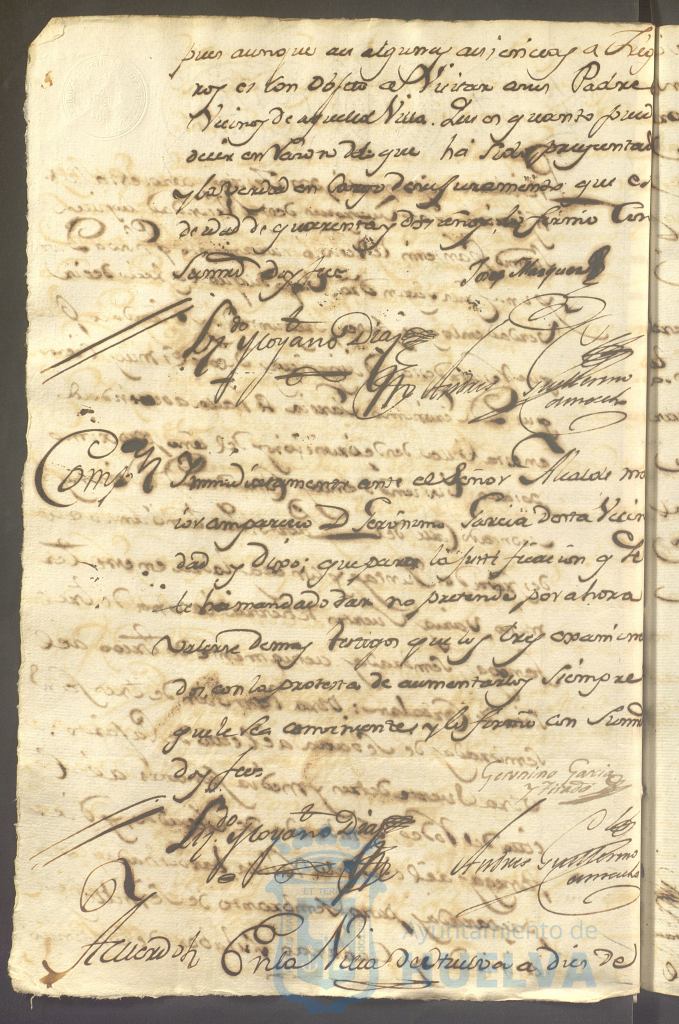 pues aunque aя algunas ausencias a
ros es con objeto a Visitar a sus Padres
Vicinos de aquella Villa. Que es quanto puede
decir en razon del que ha sido preguntad
y la verdad en cargo de su juramento, que es
de edad de quarenta y años, lo firmó con
Sumd doy fee
Josep Marquez
Lizdo Moyano Diaz
Andres Guillermo
Camacho
Comp.n Inmediatamente ante el Señor Alcalde ma
ior comparecio D Geronimo Garcia desta Vecin
dad y Dijo: que para la justificacion q se
le ha mandado dar no pretende por ahora
valerse de mas testigos que los tres examina
dos con la protesta de aumentarlos siempre
que le sea conveniente, y lo firmó con Sumd
doy fee
Geronimo Garcia
y
Lizdo Moyano Diaz
Andres Guillermo
Camacho
Acuerdo En la Villa de Huelva a dies de
Ayuntamiento de
HUELVA